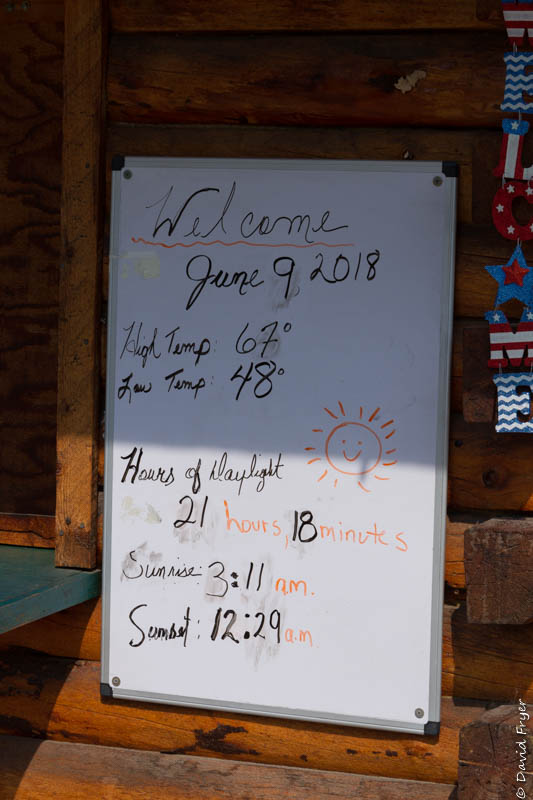 Welcome
June 9, 2018
High Temp: 67°
Low Temp: 48°
Hours of Daylight
21 hours, 18 minutes
Sunrise: 3:11 a.m.
Sunset: 12:29 a.m.
WELCOME
© David Fryer